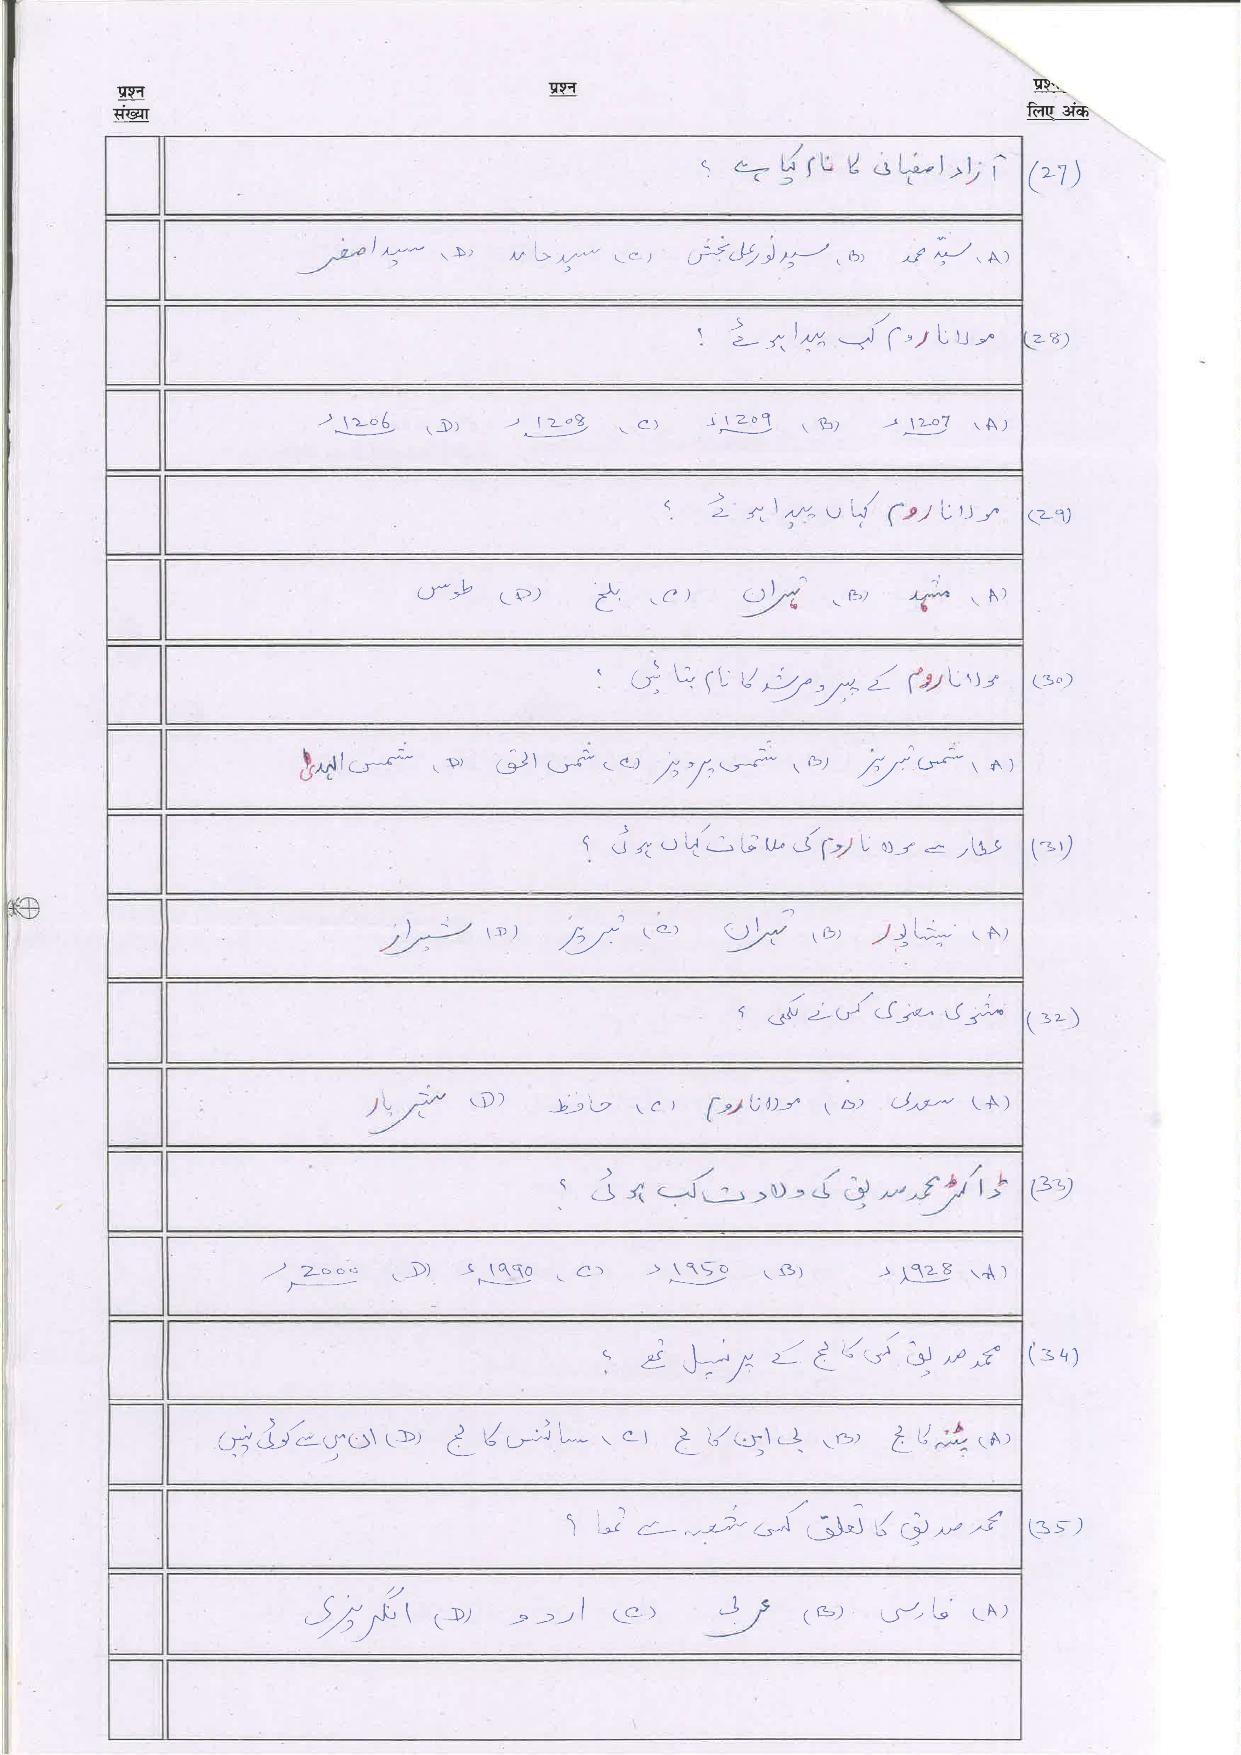 प्रश्न संख्या
प्रश्न
लिए अंक
(27) آزاد اصفہانی کا نام کیا ہے ؟
(A) سیّد محمد (B) سید نور علی بخش (C) سید حامد (D) سید اصغر
(28) مولانا روم کب پیدا ہوئے ؟
(A) 1207ء (B) 1209ء (C) 1208ء (D) 1206ء
(29) مولانا روم کہاں پیدا ہوئے ؟
(A) مشہد (B) تہران (C) بلخ (D) طوس
(30) مولانا روم کے پیر و مرشد کا نام بتائیں ؟
(A) شمس تبریز (B) شمس پرویز (C) شمس الحق (D) شمس الہدیٰ
(31) عطار سے مولانا روم کی ملاقات کہاں ہوئی ؟
(A) نیشاپور (B) تہران (C) تبریز (D) شیراز
(32) مثنوی معنوی کس نے لکھی ؟
(A) سعدی (B) مولانا روم (C) حافظ (D) شہریار
(33) ڈاکٹر محمد صدیق کی ولادت کب ہوئی ؟
(A) 1928ء (B) 1950ء (C) 1990ء (D) 2000ء
(34) محمد صدیق کس کالج کے پرنسپل تھے ؟
(A) پٹنہ کالج (B) بی این کالج (C) سائنس کالج (D) ان میں سے کوئی نہیں
(35) محمد صدیق کا تعلق کس شعبہ سے تھا ؟
(A) فارسی (B) عربی (C) اردو (D) انگریزی